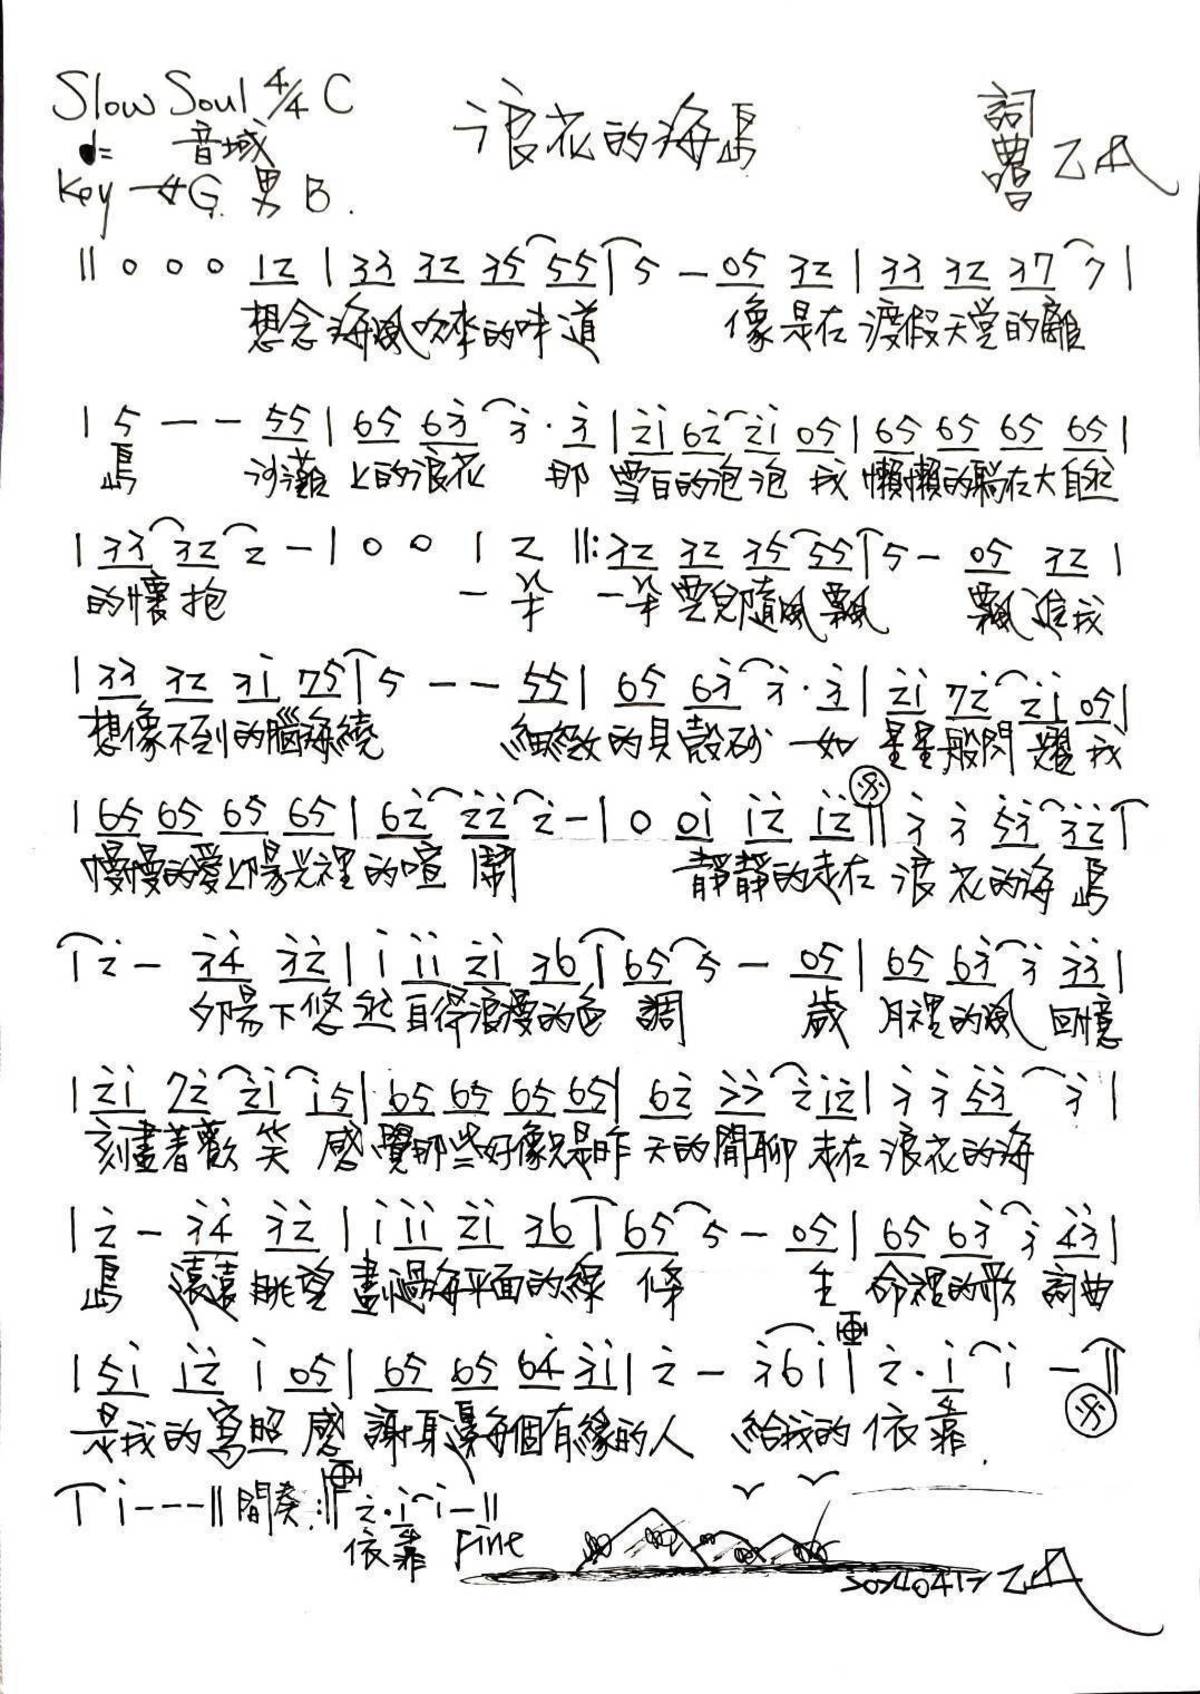 Slow Soul 4/4 C
浪花的海島
詞
曲
唱
乙
♩= 音域
Key 女G. 男B.
|| 0 0 0 12 | 33 32 35 55 | 5 — 05 32 | 33 32 37 7 |
想念海風吹來的味道 像是在渡假天堂的離
| 5 — — 55 | 65 63 3 · 3 | 21 62 21 05 | 65 65 65 65 |
島 沙灘上的浪花 那雪白的泡泡 我懶懶的躺在大自然
| 33 32 2 — | 0 0 1 2 ||: 32 32 35 55 | 5 — 05 32 |
的懷抱 一朵一朵雲兒隨風飄 飄進我
| 33 32 31 75 | 5 — — 55 | 65 63 3 · 3 | 21 72 21 05 |
想像不到的腦海繞 細緻的貝殼砂 一如星星般閃耀 我
| 65 65 65 65 | 62 22 2 — | 0 01 12 12 || 3 3 53 32 |
慢慢的愛上陽光裡的喧鬧 靜靜的走在浪花的海島
| 2 — 34 32 | 1 11 21 36 | 65 5 — 05 | 65 63 3 33 |
夕陽下悠然自得浪漫的色調 歲月裡的風 回憶
| 21 72 21 15 | 65 65 65 65 | 62 22 2 12 | 3 3 53 3 |
刻畫著歡笑 感覺那些好像只是昨天的閒聊 走在浪花的海
| 2 — 34 32 | 1 11 21 36 | 65 5 — 05 | 65 63 3 43 |
島 遠遠眺望畫過海平面的線條 生命裡的歌 詞曲
| 51 12 1 05 | 65 65 64 31 | 2 — 36 1 | 2 · 1 1 — ||
是我的寫照 感謝身邊每個有緣的人 給我的依靠.
| 1 — — — || 間奏 :|| 2 · 1 1 — ||
依靠 Fine
乙